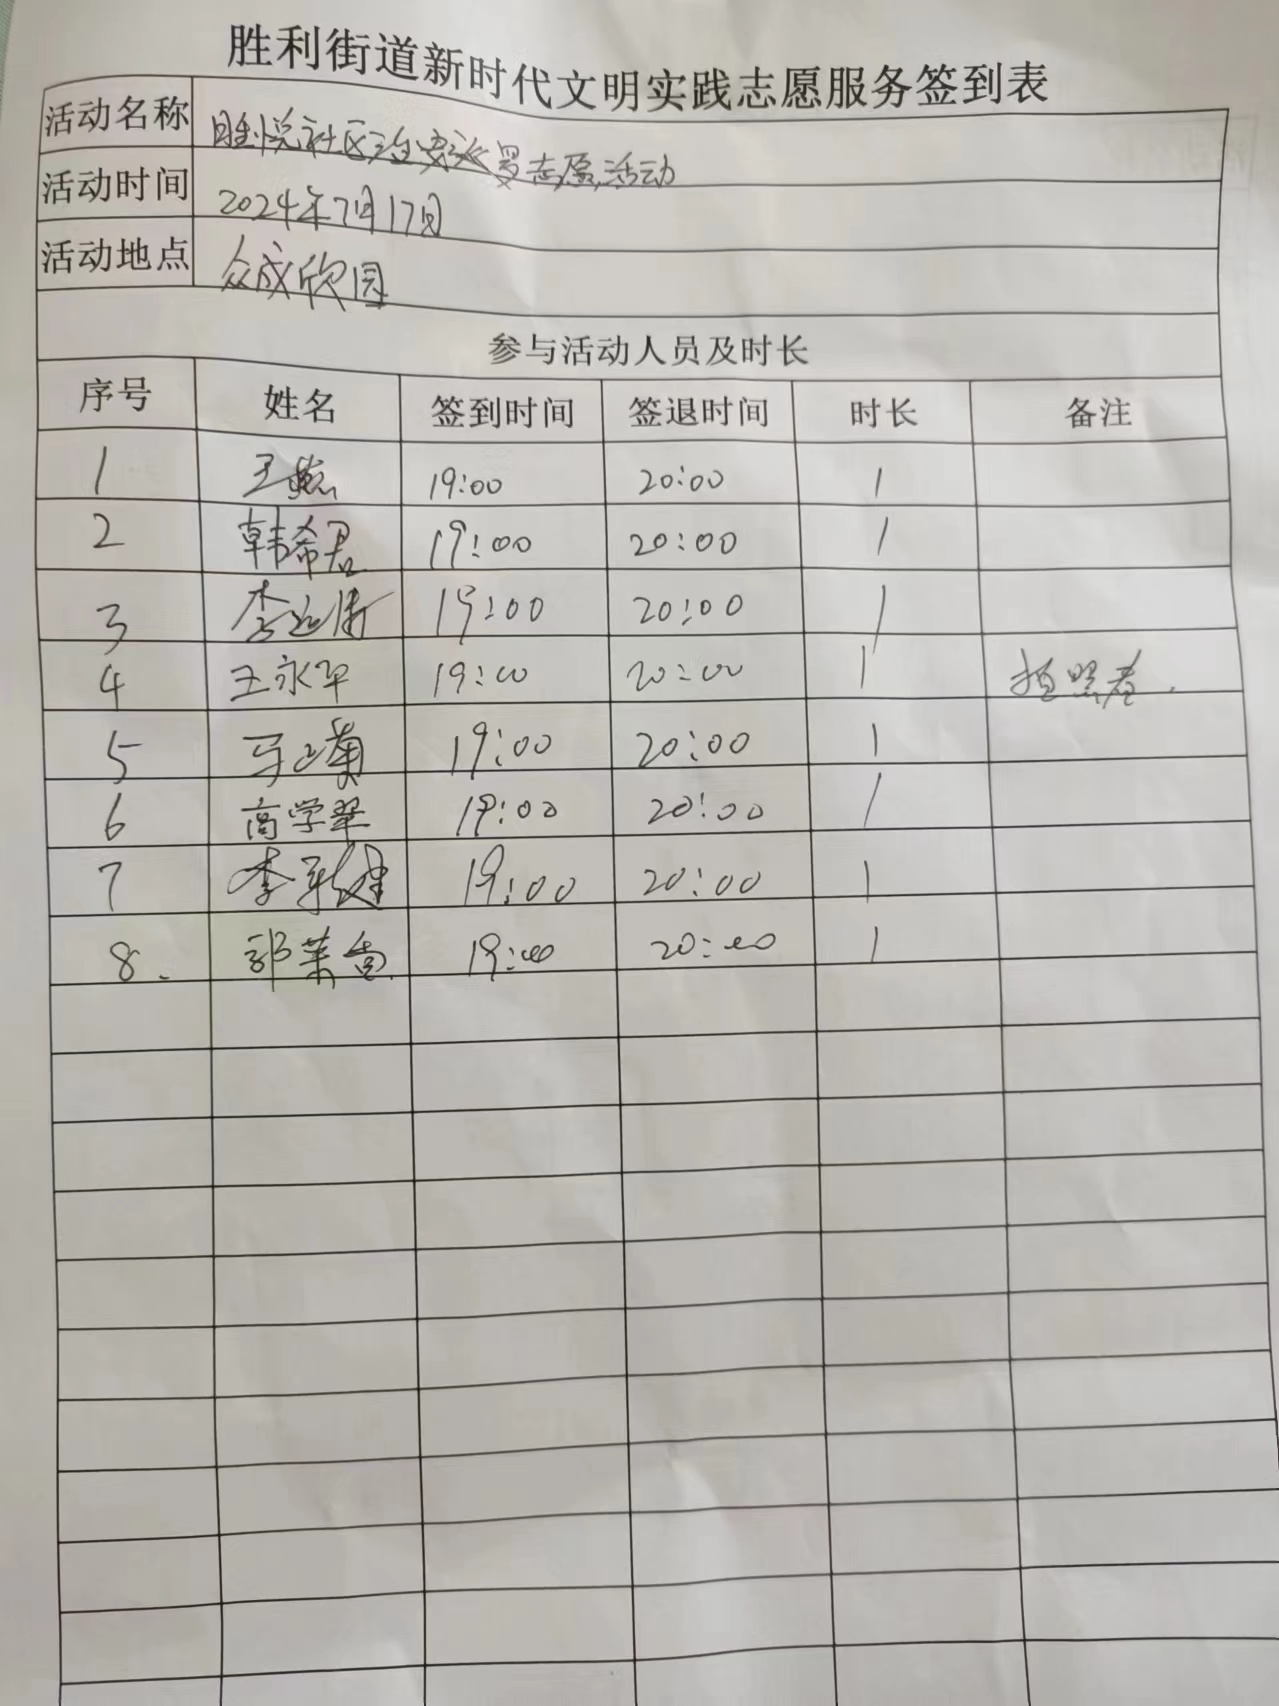 胜利街道新时代文明实践志愿服务签到表
活动名称 胜悦社区治安巡逻志愿活动
活动时间 2024年7月17日
活动地点 众成欣园
参与活动人员及时长
序号 姓名 签到时间 签退时间 时长 备注
1 王 19:00 20:00 1
2 韩希君 19:00 20:00 1
3 李 19:00 20:00 1
4 王永平 19:00 20:00 1 拍照者.
5 马 19:00 20:00 1
6 高学翠 19:00 20:00 1
7 李 19:00 20:00 1
8. 郭 19:00 20:00 1